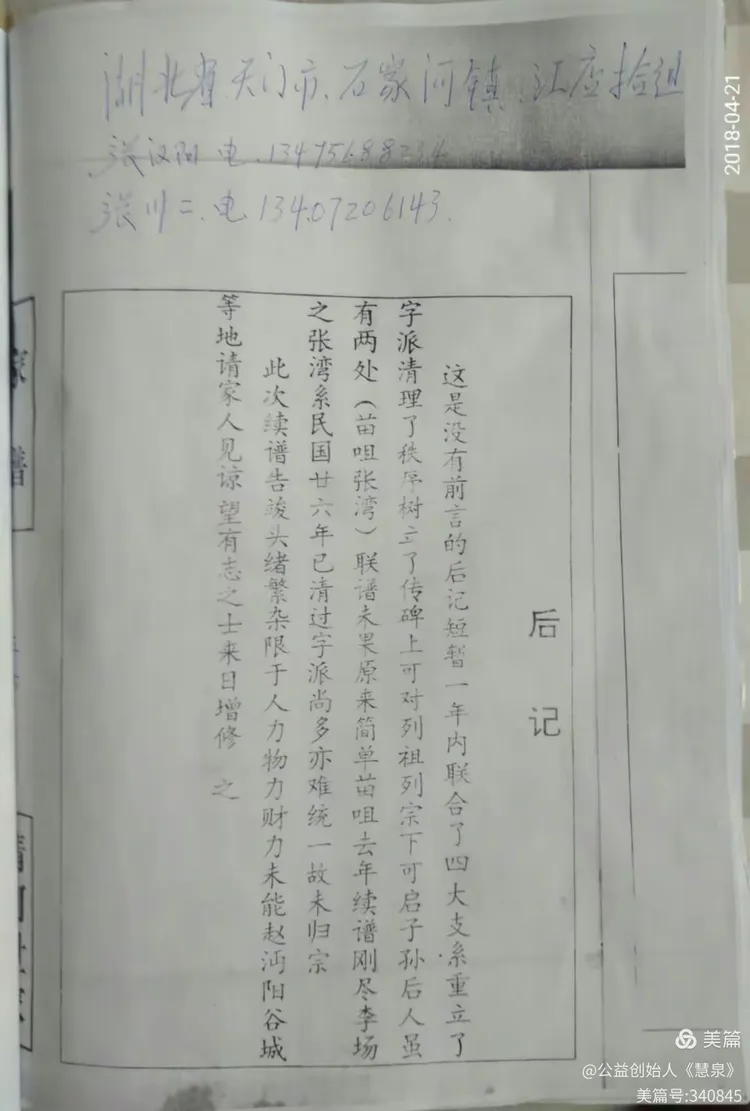 湖北省.天门市.石家河镇.江应抬组
张汉阳 电.13475688234
张川二.电13407206143.
2018-04-21
后记
这是没有前言的后记短暂一年内联合了四大支系重立了
字派清理了秩序树立了传碑上可对列祖列宗下可启子孙后人虽
有两处（苗咀张湾）联谱未果原来简单苗咀去年续谱刚尽李场
之张湾系民国廿六年已清过字派尚多亦难统一故未归宗
此次续谱告竣头绪繁杂限于人力物力财力未能赵沔阳谷城
等地请家人见谅望有志之士来日增修之
家谱
清河
美篇
@公益创始人《慧泉》
美篇号:340845